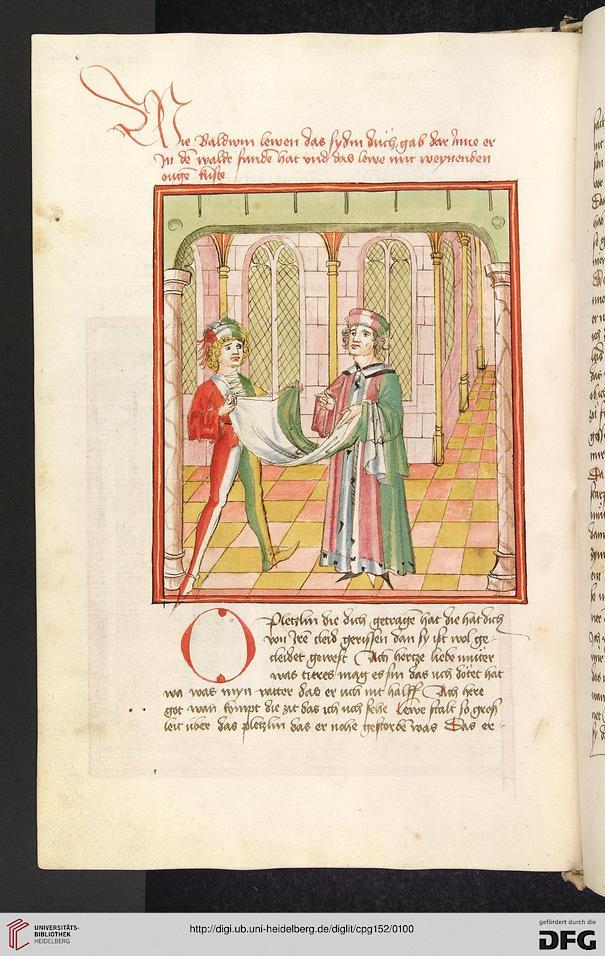 Wie Baldwin lewen das sydin duch gab dar Inne er
In dē walde funden hat vnd das lewe mit weynenden
augē kuste
O Pletzlin die dich getragē hat die hat dich
von Ire cleid gerissen dan sy ist wol ge-
cleidet gewest Ach hertze liebe muter
was tieres mag es sin das uch dötet hat
wa was myn vatter das er uch nit halff Ach here
got wan kompt die zit das ich uch sehe Lewe stalt so groß
leit über das pletzlin das er nohe gestorbē was Das er-
UNIVERSITÄTS-
BIBLIOTHEK
HEIDELBERG
http://digi.ub.uni-heidelberg.de/diglit/cpg152/0100
gefördert durch die
DFG